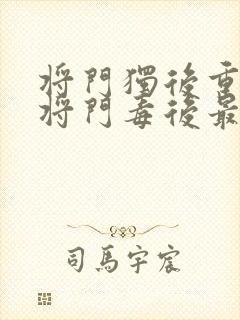 將門獨後重
將門毒後最
司馬宇宸